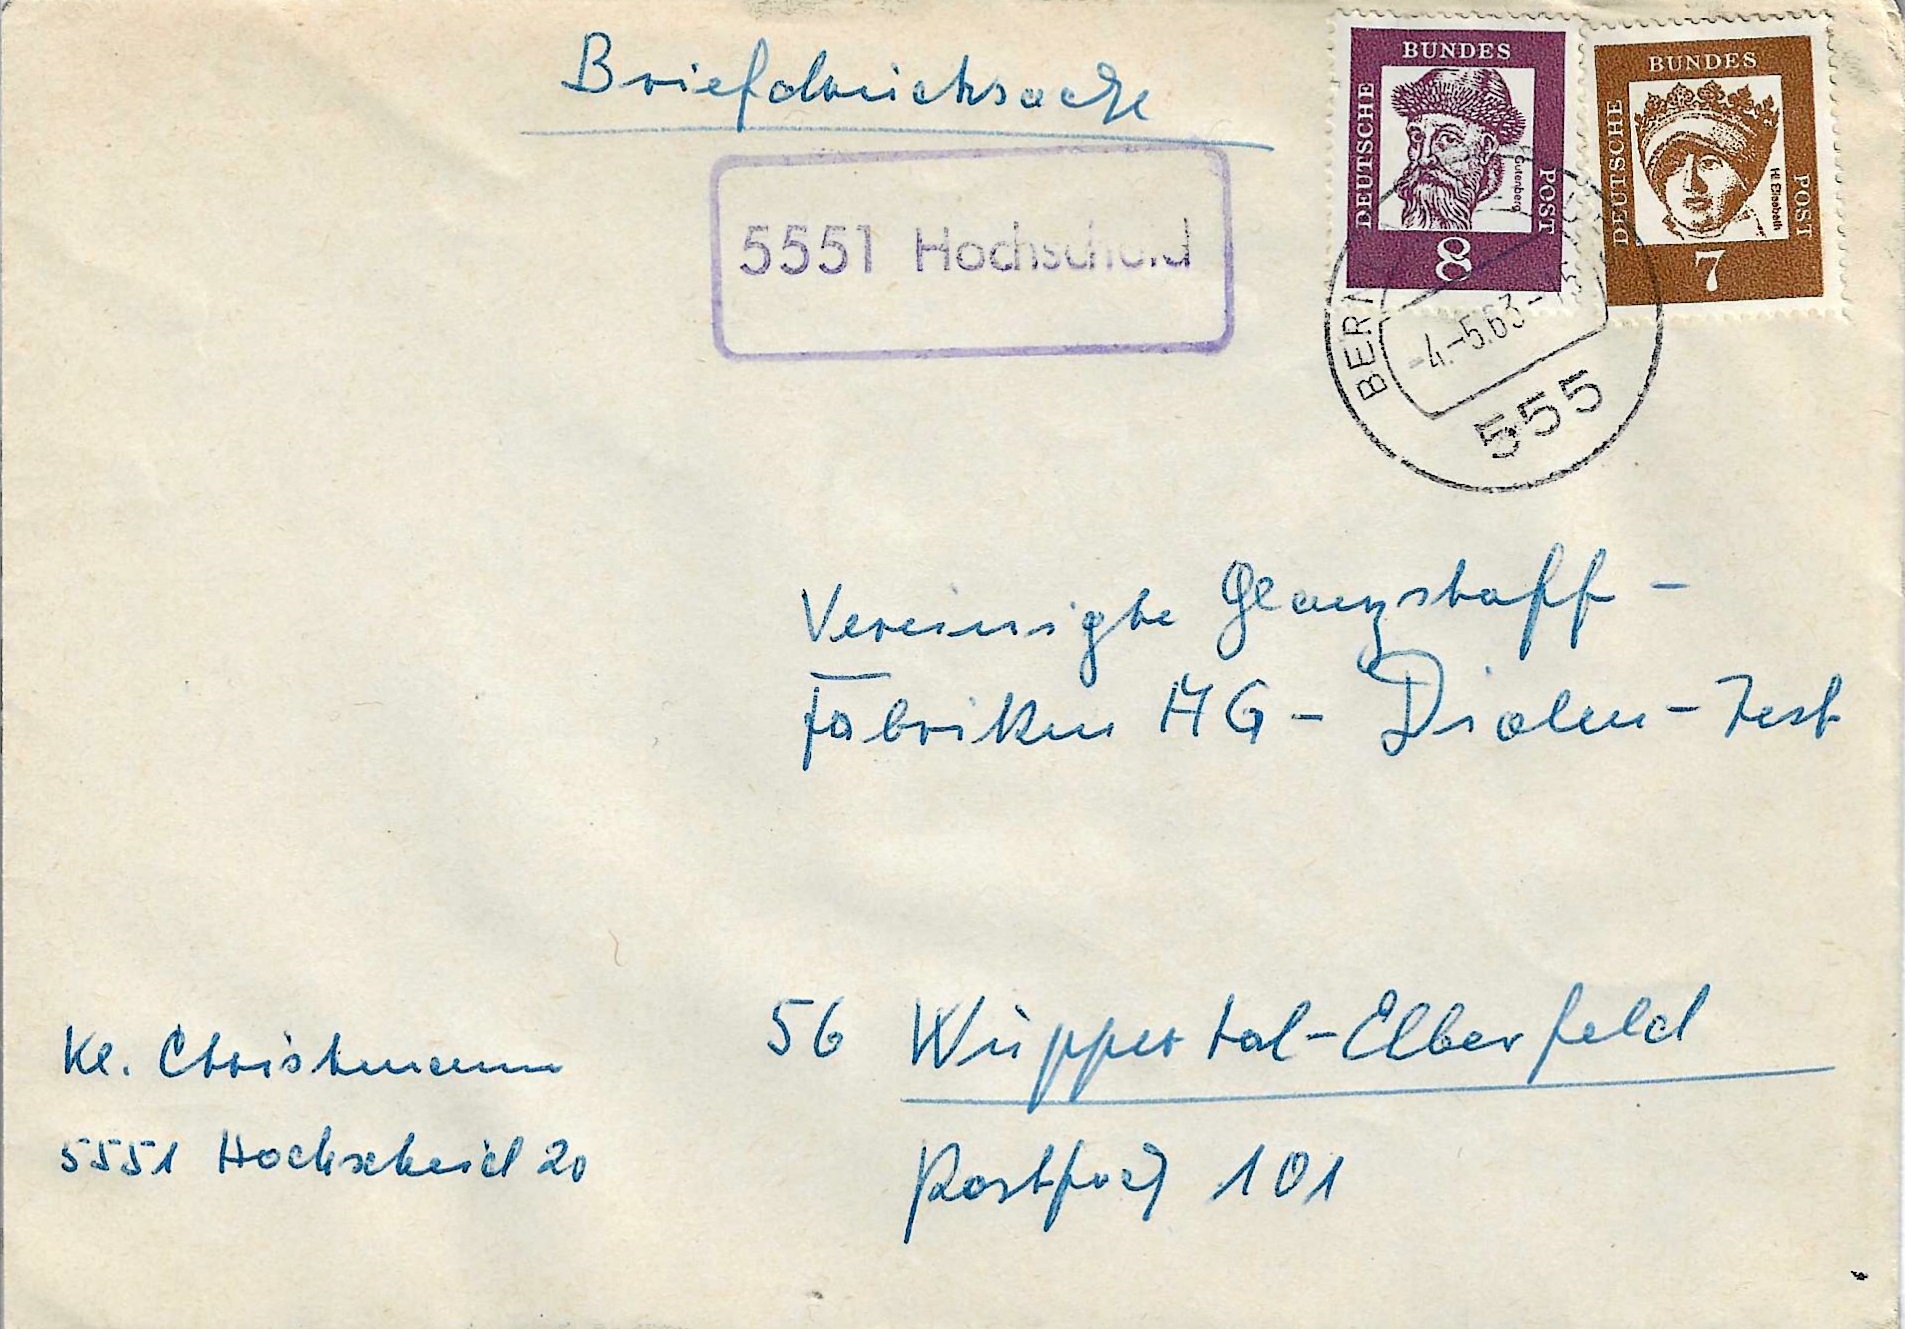 Briefdrucksache
5551 Hochscheid
BUNDES
DEUTSCHE
POST
Gutenberg
8
BUNDES
DEUTSCHE
POST
Hl. Elisabeth
7
-4.-5.63-
555
Vereinigte Glanzstoff-
Fabriken AG - Diolen-Test
56 Wuppertal-Elberfeld
Postfach 101
Kl. Christmann
5551 Hochscheid 20